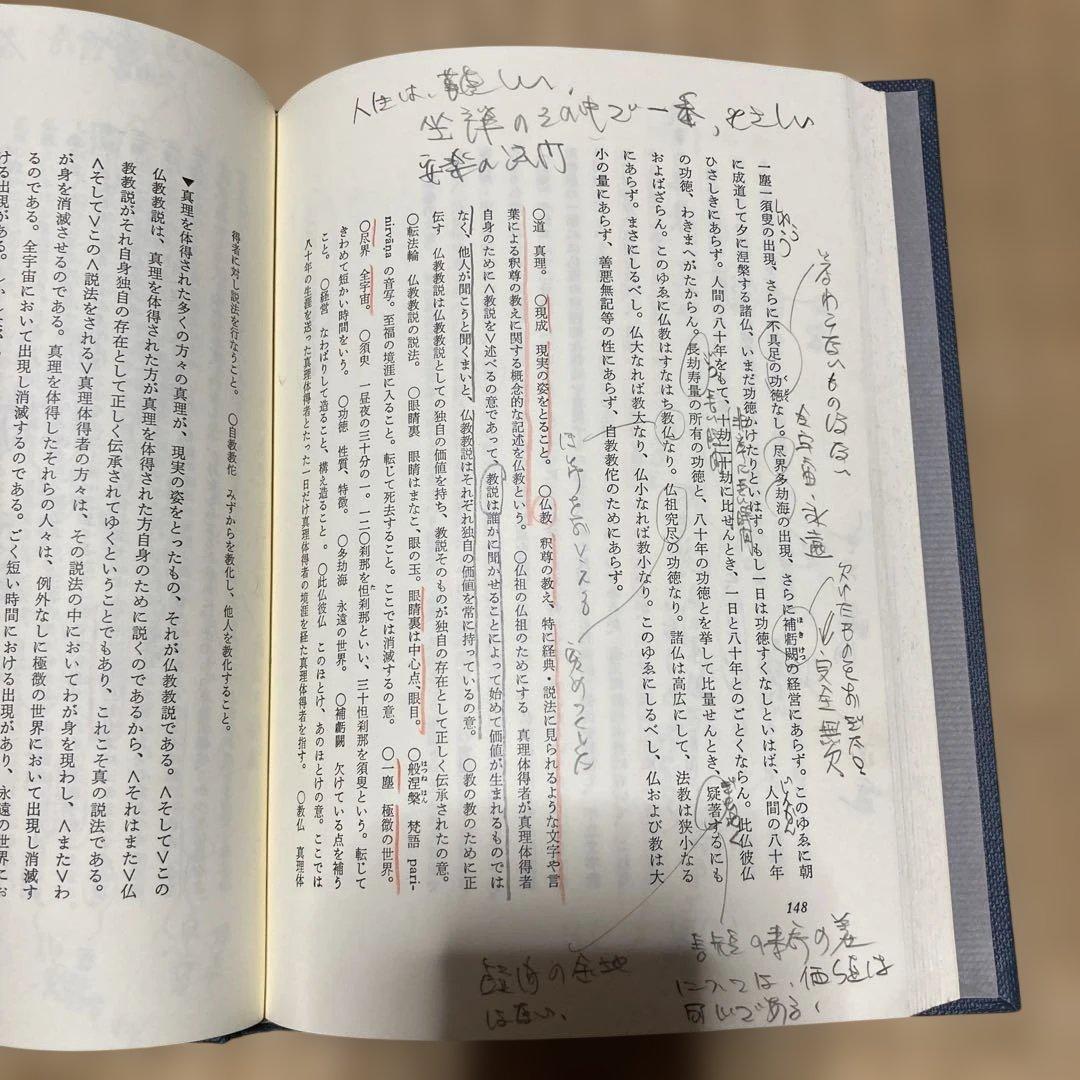 人生は、難しい、
坐禅のその中で一番、やさしい
安楽の法門
一塵一須臾の出現、さらに不具足の功徳なし。尽界多劫海の出現、さらに補虧闕の経営にあらず。このゆゑに朝
に成道して夕に涅槃する諸仏、いまだ功徳かけたりといはず。もし一日は功徳すくなしといはば、人間の八十年
ひさしきにあらず。人間の八十年をもて、十劫二十劫に比せんとき、一日と八十年とのごとくならん。此仏彼仏
の功徳、わきまへがたからん。長劫寿量の所有の功徳と、八十年の功徳とを挙して比量せんとき、疑著するにも
およばざらん。このゆゑに仏教はすなはち教仏なり。仏祖究尽の功徳なり。諸仏は高広にして、法教は狭少なる
にあらず。まさにしるべし。仏大なれば教大なり、仏小なれば教小なり。このゆゑにしるべし、仏および教は大
小の量にあらず、善悪無記等の性にあらず、自教教佗のためにあらず。
〇道　真理。　〇現成　現実の姿をとること。　〇仏教　釈尊の教え、特に経典・説法に見られるような文字や言
葉による釈尊の教えに関する概念的な記述を仏教という。　〇仏祖の仏祖のためにする　真理体得者が真理体得者
自身のために＜教説を＞述べるの意であって、教説は誰かに聞かせることによって始めて価値が生まれるものでは
なく、他人が聞こうと聞くまいと、仏教教説はそれぞれ独自の価値を常に持っているの意。　〇教の教のために正
伝す　仏教教説は仏教教説としての独自の価値を持ち、教説そのものが独自の存在として正しく伝承されたの意。
〇転法輪　仏教教説の説法。　〇眼睛裏　眼睛はまなこ、眼の玉。眼睛裏は中心点、眼目。　〇般涅槃　梵語 pari-
nirvāṇa の音写。至福の境涯に入ること。転じて死去すること。ここでは消滅するの意。　〇一塵　極微の世界。
〇尽界　全宇宙。　〇須臾　一昼夜の三十分の一。一二〇刹那を怛刹那といい、三十怛刹那を須臾という。転じて
きわめて短かい時間をいう。　〇功徳　性質、特徴。　〇多劫海　永遠の世界。　〇補虧闕　欠けている点を補う
こと。　〇経営　なわばりして造ること、構え造ること。　〇此仏彼仏　このほとけ、あのほとけの意。ここでは
八十年の生涯を送った真理体得者とたった一日だけ真理体得者の境涯を経た真理体得者を指す。　〇教仏　真理体
148
そなわらないものはない
全宇宙・永遠
完全無欠
きわめつくした
疑問の余地
はない、
長短の寿命の差
については、価値は
同じである、
得者に対し説法を行なうこと。　〇自教教佗　みずからを教化し、他人を教化すること。
▼真理を体得された多くの方々の真理が、現実の姿をとったもの、それが仏教教説である。＜そして＞この
仏教教説は、真理を体得された方が真理を体得された方自身のために説くのであるから、＜それはまた＞仏
教教説がそれ自身独自の存在として正しく伝承されてゆくということでもあり、これこそ真の説法である。
＜そして＞この＜説法をされる＞真理体得者の方々は、その説法の中においてわが身を現わし、＜また＞わ
が身を消滅させるのである。真理を体得したそれらの人々は、例外なしに極微の世界において出現し消滅す
るのである。全宇宙において出現し消滅するのである。ごく短い時間における出現があり、永遠の世界にお
ける出現がある。